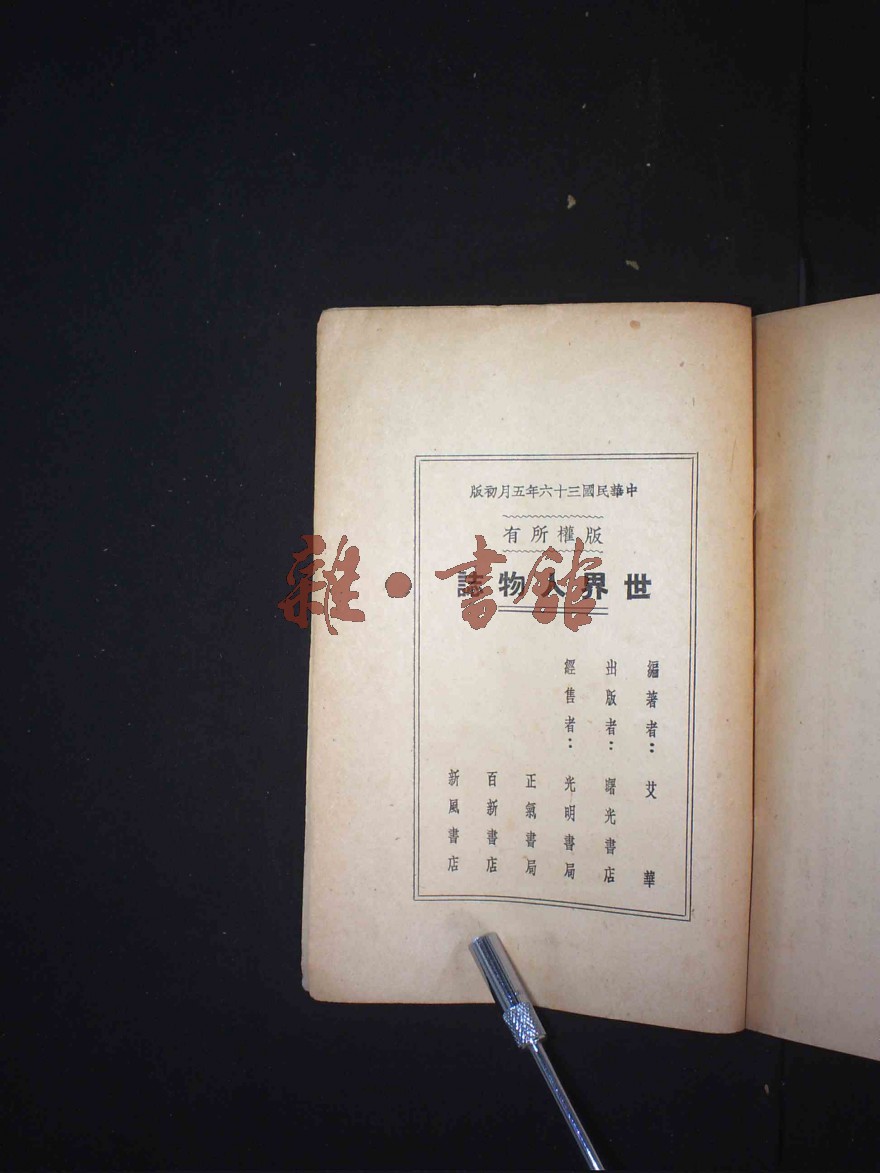 中華民國三十六年五月初版
版權所有
世界人物誌
編著者：艾華
出版者：曙光書店
經售者：光明書局
正氣書局
百新書店
新風書店
雜·書館